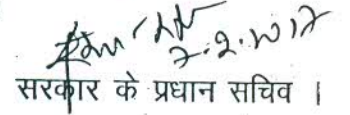 7.2.2017
सरकार के प्रधान सचिव ।